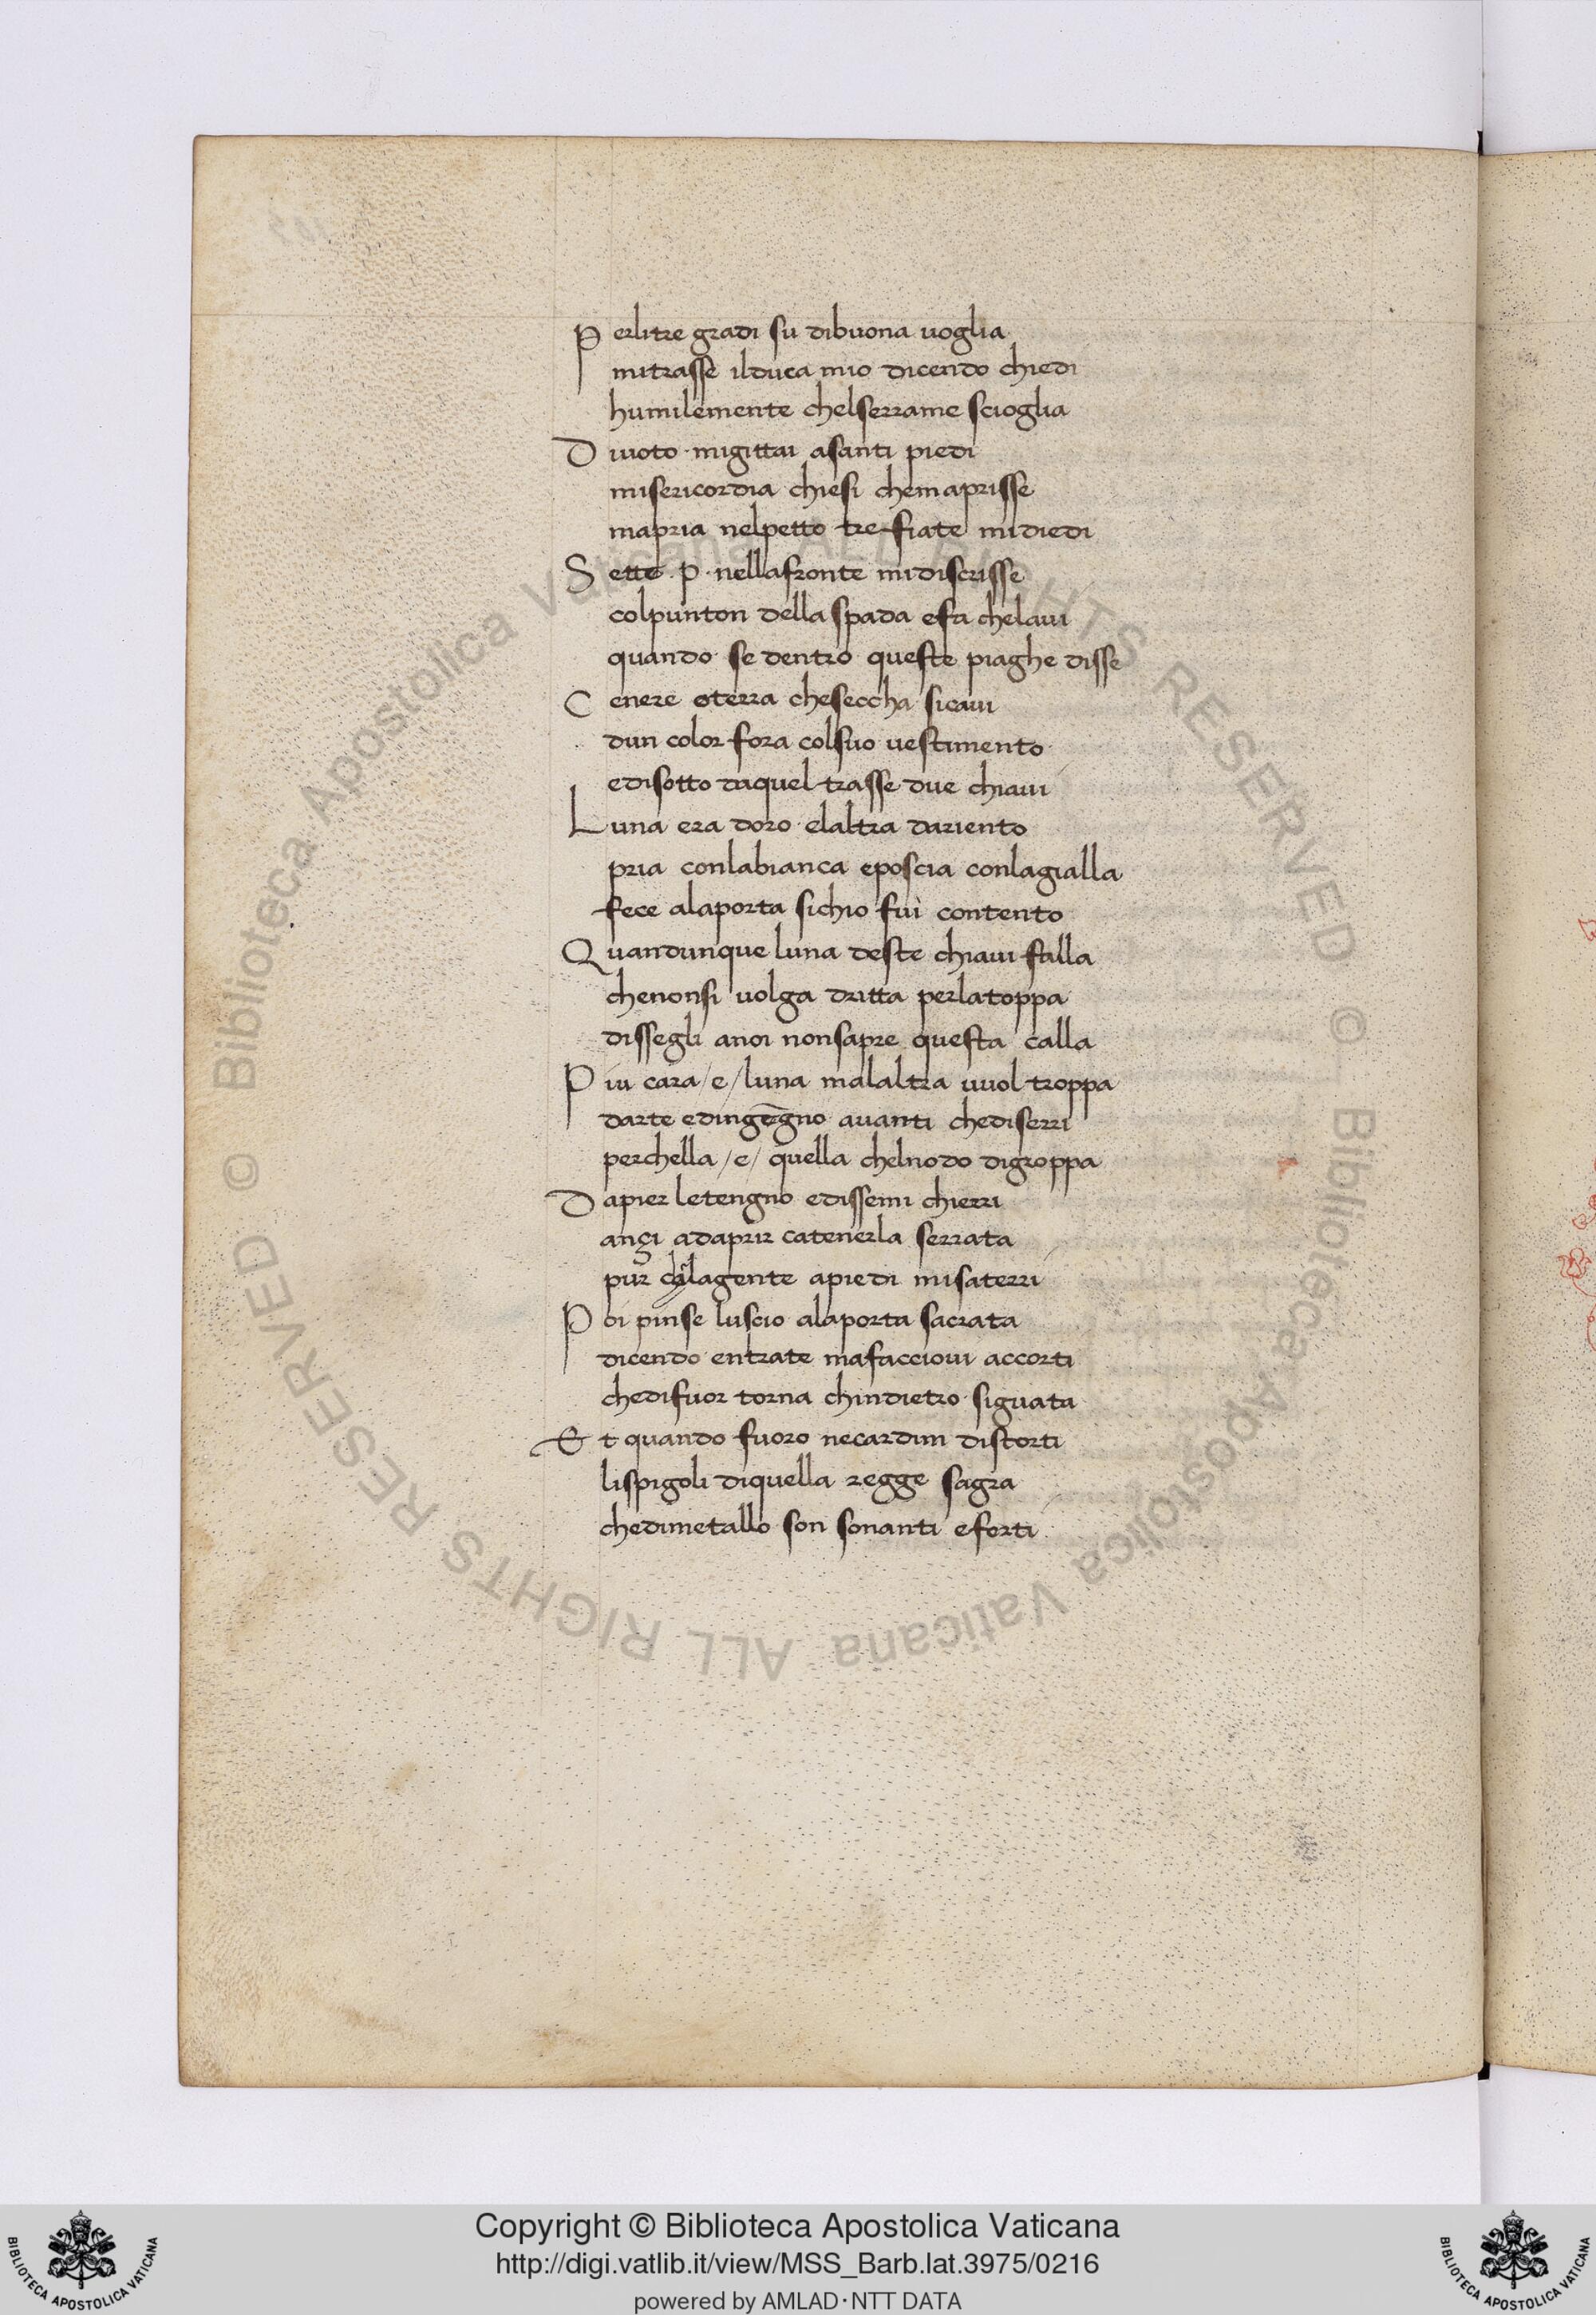 Perlitre gradi su dibuona uoglia
mitrasse ilduca mio dicendo chiedi
humilemente chelserrame scioglia
Diuoto migittai asanti piedi
misericordia chiesi chemaprisse
mapria nelpetto tre fiate midiedi
Sette .p. nellafronte midiscrisse
colpunton della spada efa chelaui
quando se dentro queste piaghe disse
Cenere oterra cheseccha sicaui
dun color fora colsuo uestimento
edisotto daquel trasse due chiaui
Luna era doro elaltra dariento
pria conlabianca eposcia conlagialla
fece alaporta sichio fui contento
Quandunque luna deste chiaui falla
chenonsi uolga dritta perlatoppa
dissegli anoi nonsapre questa calla
Piu cara /e/ luna malaltra uuol troppa
darte edingegno auanti chediserri
perchella /e/ quella chelnodo digroppa
Dapier letengno edissemi chierri
ançi adaprir catenerla serrata
pur chelagente apiedi misaterri
Poi pinse luscio alaporta sacrata
dicendo entrate mafaccioui accorti
chedifuor torna chindietro siguata
Et quando fuoro necardini distorti
lispigoli diquella regge sagra
chedimetallo son sonanti eforti
© Biblioteca Apostolica Vaticana ALL RIGHTS RESERVED © Biblioteca Apostolica Vaticana ALL RIGHTS RESERVED
Copyright © Biblioteca Apostolica Vaticana
http://digi.vatlib.it/view/MSS_Barb.lat.3975/0216
powered by AMLAD·NTT DATA
BIBLIOTECA APOSTOLICA VATICANA
BIBLIOTECA APOSTOLICA VATICANA